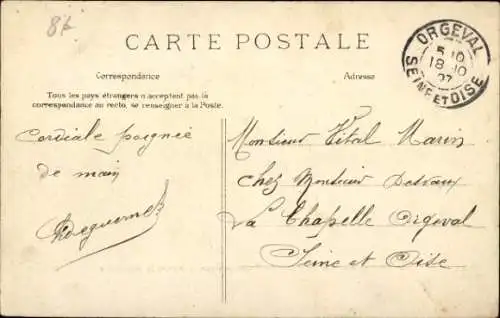 8f
CARTE POSTALE
ORGEVAL
5 10
18-10
07
SEINE ET OISE
Correspondance
Adresse
Tous les pays étrangers n'acceptent pas la
correspondance au recto, se renseigner à la Poste.
Cordiale poignée
de main
Monsieur Vital Marin
chez Monsieur Detraux
La Chapelle Orgeval
Seine et Oise